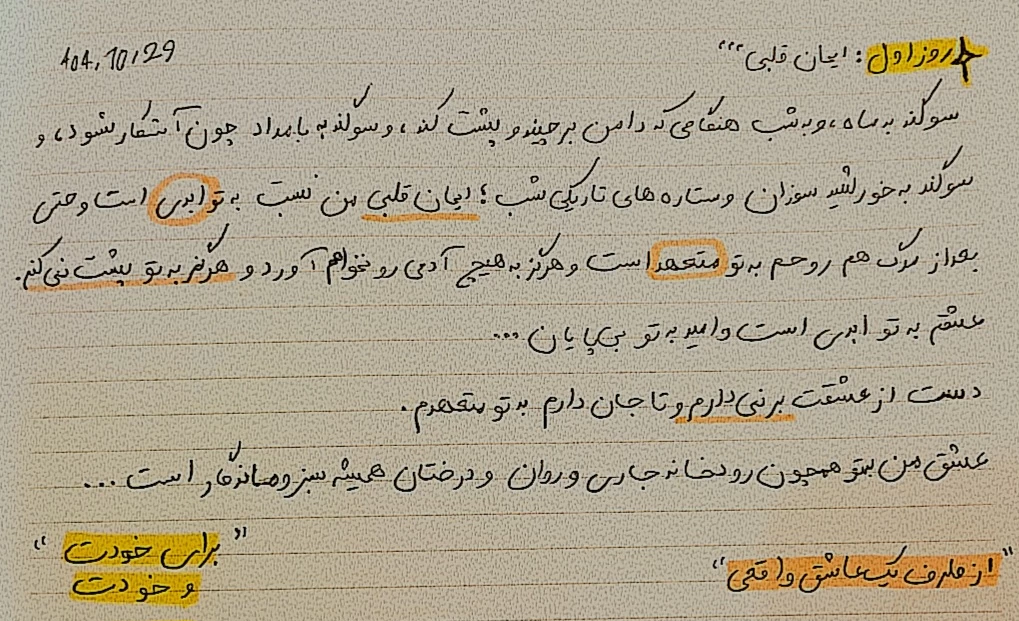 روز اول : ایمان قلبی ٬٬٬
404,10,29
سوگند به ماه، و به شب هنگامی که دامن برچیند و پشت کند، و سوگند به بامداد چون آشکار شود، و
سوگند به خورشید سوزان و ستاره های تاریکی شب؛ ایمان قلبی من نسبت به تو ابدی است و حتی
بعد از مرگ هم روحم به تو متعهد است و هرگز به هیچ آدمی رو نخواهم آورد و هرگز به تو پشت نمی کنم.
عشقم به تو ابدی است و امید به تو بی پایان ...
دست از عشقت برنمی دارم و تا جان دارم به تو متعهدم.
عشق من بتو همچون رودخانه جاری و روان و درختان همیشه سبز و ماندگار است ...
"از طرف یک عاشق واقعی"
"برای خودت
و خودت"